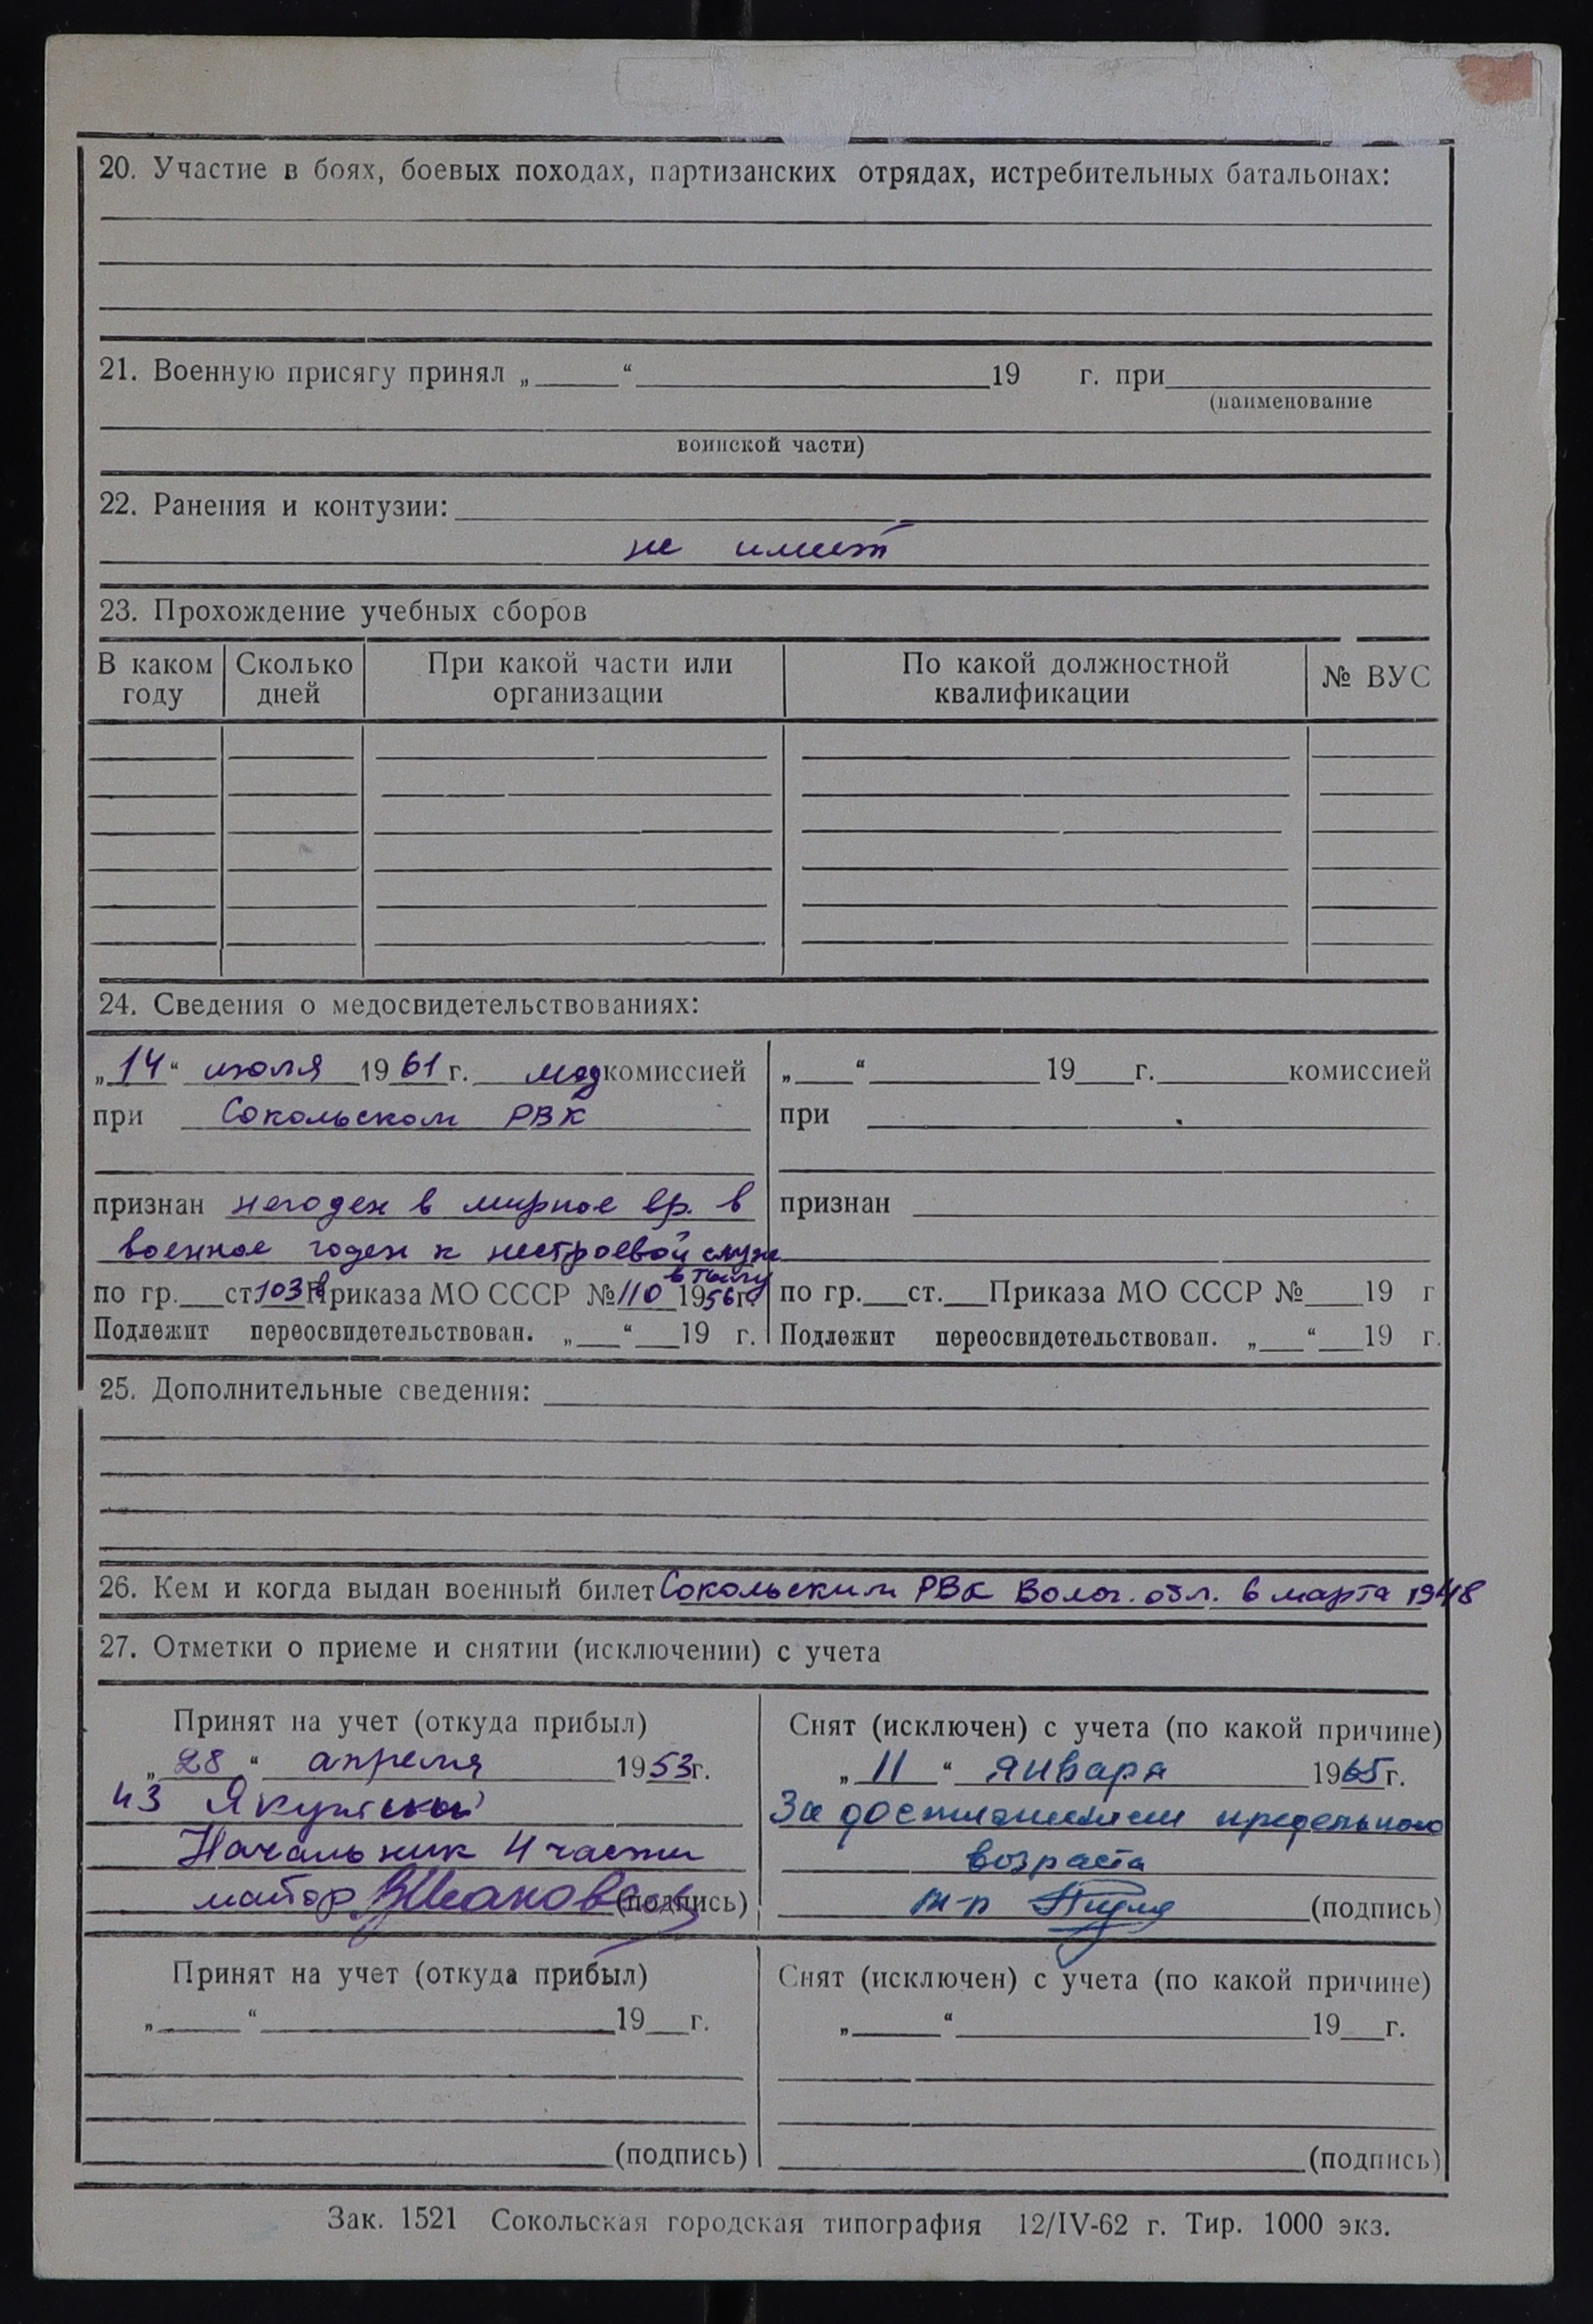 20. Участие в боях, боевых походах, партизанских отрядах, истребительных батальонах:
21. Военную присягу принял „ “ 19 г. при
(наименование
воинской части)
22. Ранения и контузии:
не имеет
23. Прохождение учебных сборов
В каком году Сколько дней При какой части или организации По какой должностной квалификации № ВУС
24. Сведения о медосвидетельствованиях:
„14“ июля 1961 г. мед комиссией
при Сокольском РВК
признан негоден в мирное вр. в
военное годен к нестроевой служ
в тылу
по гр. ст. 103 в Приказа МО СССР № 110 1956 г.
Подлежит переосвидетельствован. „ “ 19 г.
„ “ 19 г. комиссией
при
признан
по гр. ст. Приказа МО СССР № 19 г
Подлежит переосвидетельствован. „ “ 19 г.
25. Дополнительные сведения:
26. Кем и когда выдан военный билет Сокольским РВК Волог. обл. 6 марта 1948
27. Отметки о приеме и снятии (исключении) с учета
Принят на учет (откуда прибыл)
„28“ апреля 1953 г.
из Якутской
Начальник 4 части
майор (подпись)
Снят (исключен) с учета (по какой причине)
„11“ января 1965 г.
За достижением предельного
возраста
м-р (подпись)
Принят на учет (откуда прибыл)
„ “ 19 г.
(подпись)
Снят (исключен) с учета (по какой причине)
„ “ 19 г.
(подпись)
Зак. 1521 Сокольская городская типография 12/IV-62 г. Тир. 1000 экз.